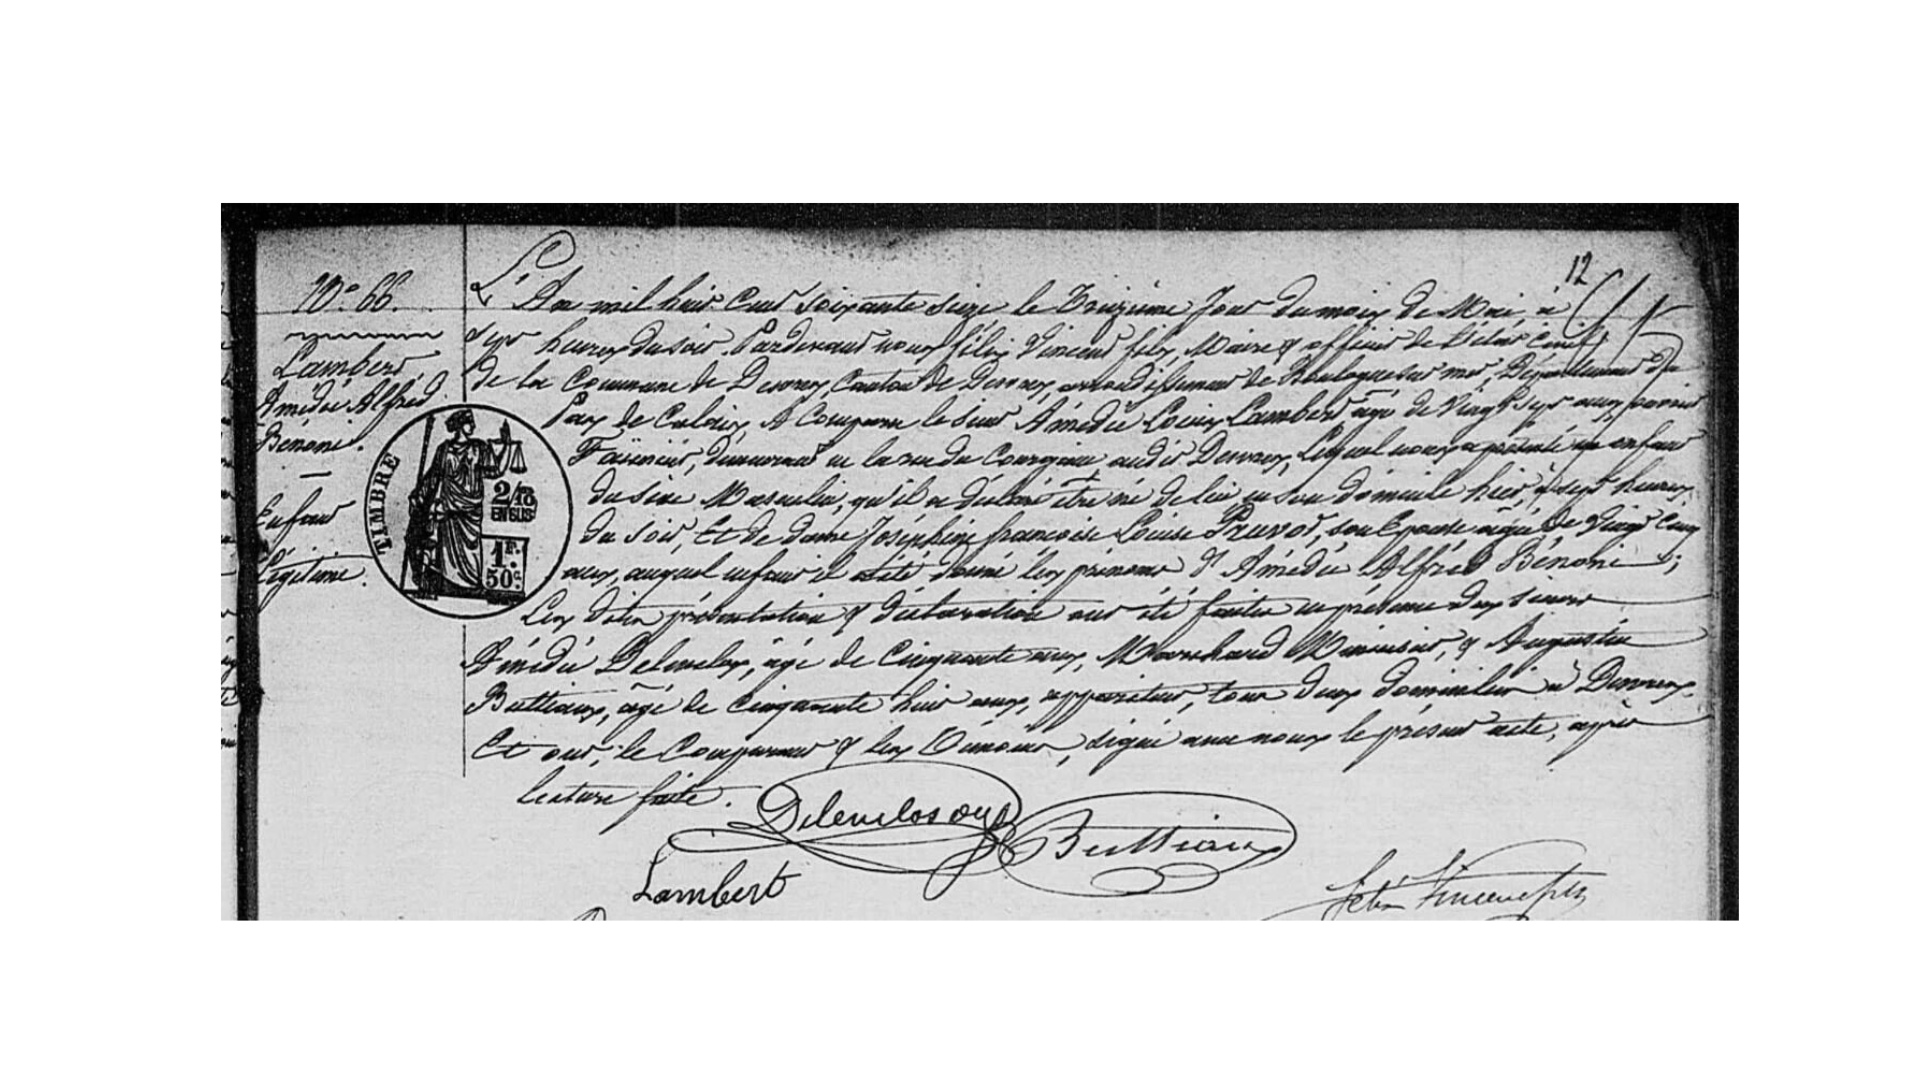 12
N° 66.
Lambert,
Amédée Alfred
Bénoni.
Enfant
Légitime.
TIMBRE
2/10
EN SUS
1F.
50c.
L'An mil huit Cent Soixante Seize le Treizième Jour du mois de Mai, à
Sept heures du soir. Pardevant nous félix Vincent fils, Maire & officier de l'état Civil
de la Commune de Desvres, Canton de Desvres, arrondissement de Boulogne sur mer, Département du
Pas de Calais, A Comparu le sieur Amédée Louis Lambert âgé de Vingt sept ans, ouvrier
Faïencier, demeurant en la rue du audit Desvres, Lequel nous a présenté un enfant
du sexe Masculin, qu'il a déclaré être né de lui en son domicile hier, à sept heures
du soir, Et de dame Joséphine françoise Louise Pruvot, son Epouse âgée de Vingt Cinq
ans, auquel enfant il a été donné les prénoms d'Amédée Alfred Bénoni ;
Les dites présentation & déclaration ont été faites en présence des sieurs
Amédée , âgé de Cinquante ans, Marchand Menuisier, & Augustin
Buttiaux, âgé de Cinquante huit ans, appariteur, tous deux domiciliés à Desvres.
Et ont, le Comparant & les Témoins, signé avec nous le présent acte, après
lecture faite.
Buttiaux
Lambert
félix Vincent fils